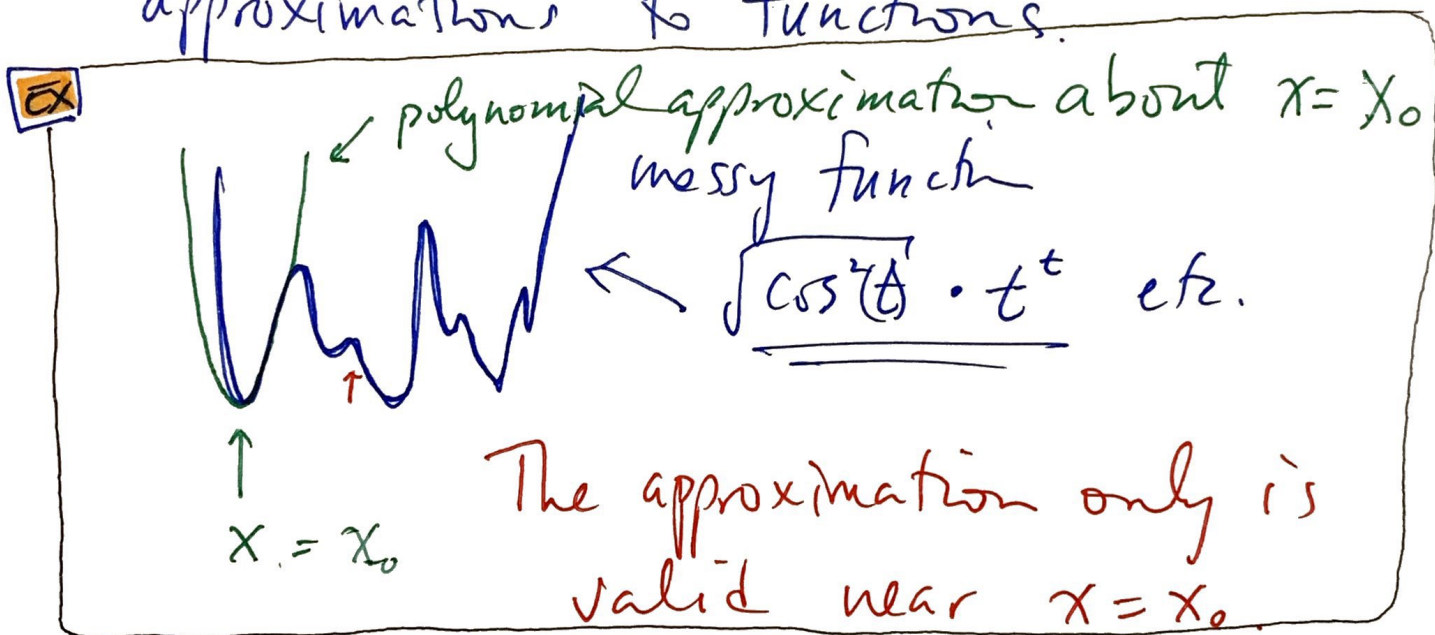 approximations to functions.
EX
polynomial approximation about x = x₀
messy functn
√cos²(t) · t^t etc.
x = x₀
The approximation only is
valid near x = x₀.